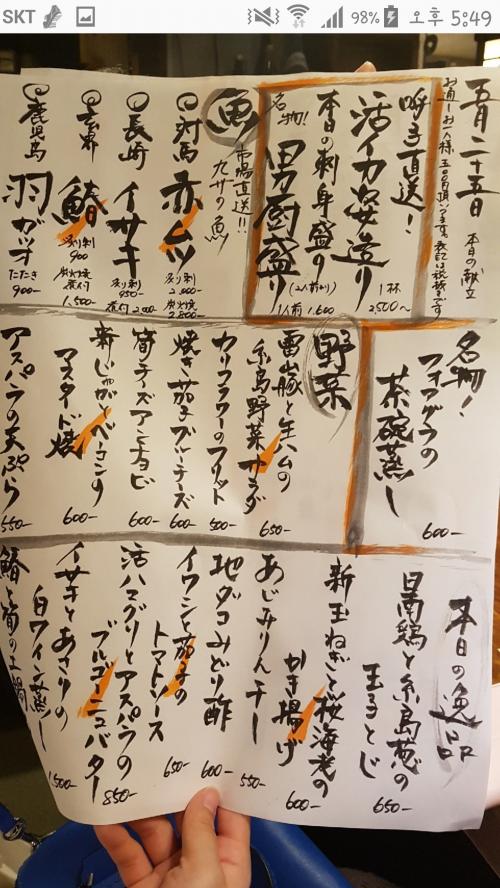 SKT 98% 오후 5:49
五月二十五日 本日の献立
お通しお一人様五〇〇円頂いてます。表記は税抜です
呼子直送!
活イカ姿造り 1杯 2,500〜
本日の刺身盛り
名物! 男厨盛り (2人前から) 1人前 1,600
魚 市場直送!! 九州の魚
対馬 赤ムツ 炙り刺 2,000- 炭火焼 2,800-
長崎 イサキ 炙り刺 950- 煮付 2,000-
玄界 鰆 炙り刺 900 炭火焼 1,500-
鹿児島 羽ガツオ たたき 900-
名物! フォアグラの
茶碗蒸し 600-
野菜
雷山豚と生ハムの
糸島野菜サラダ 650-
カリフラワーのフリット 500-
焼き茄子ブルーチーズ 600-
筍チーズアンチョビ 600-
新じゃがとベーコンの
マスタード焼 600-
アスパラの天ぷら 550-
本日の逸品
日南鶏と糸島葱の
玉子とじ 650-
新玉ねぎと桜海老の
かき揚げ 600-
あじみりん干し 550-
地ダコみどり酢 600-
イワシと茄子の
トマトソース 650-
活ハマグリとアスパラの
ブルゴーニュバター 850-
イサキとあさりの
白ワイン蒸し 1,500-
鰆と筍の土鍋